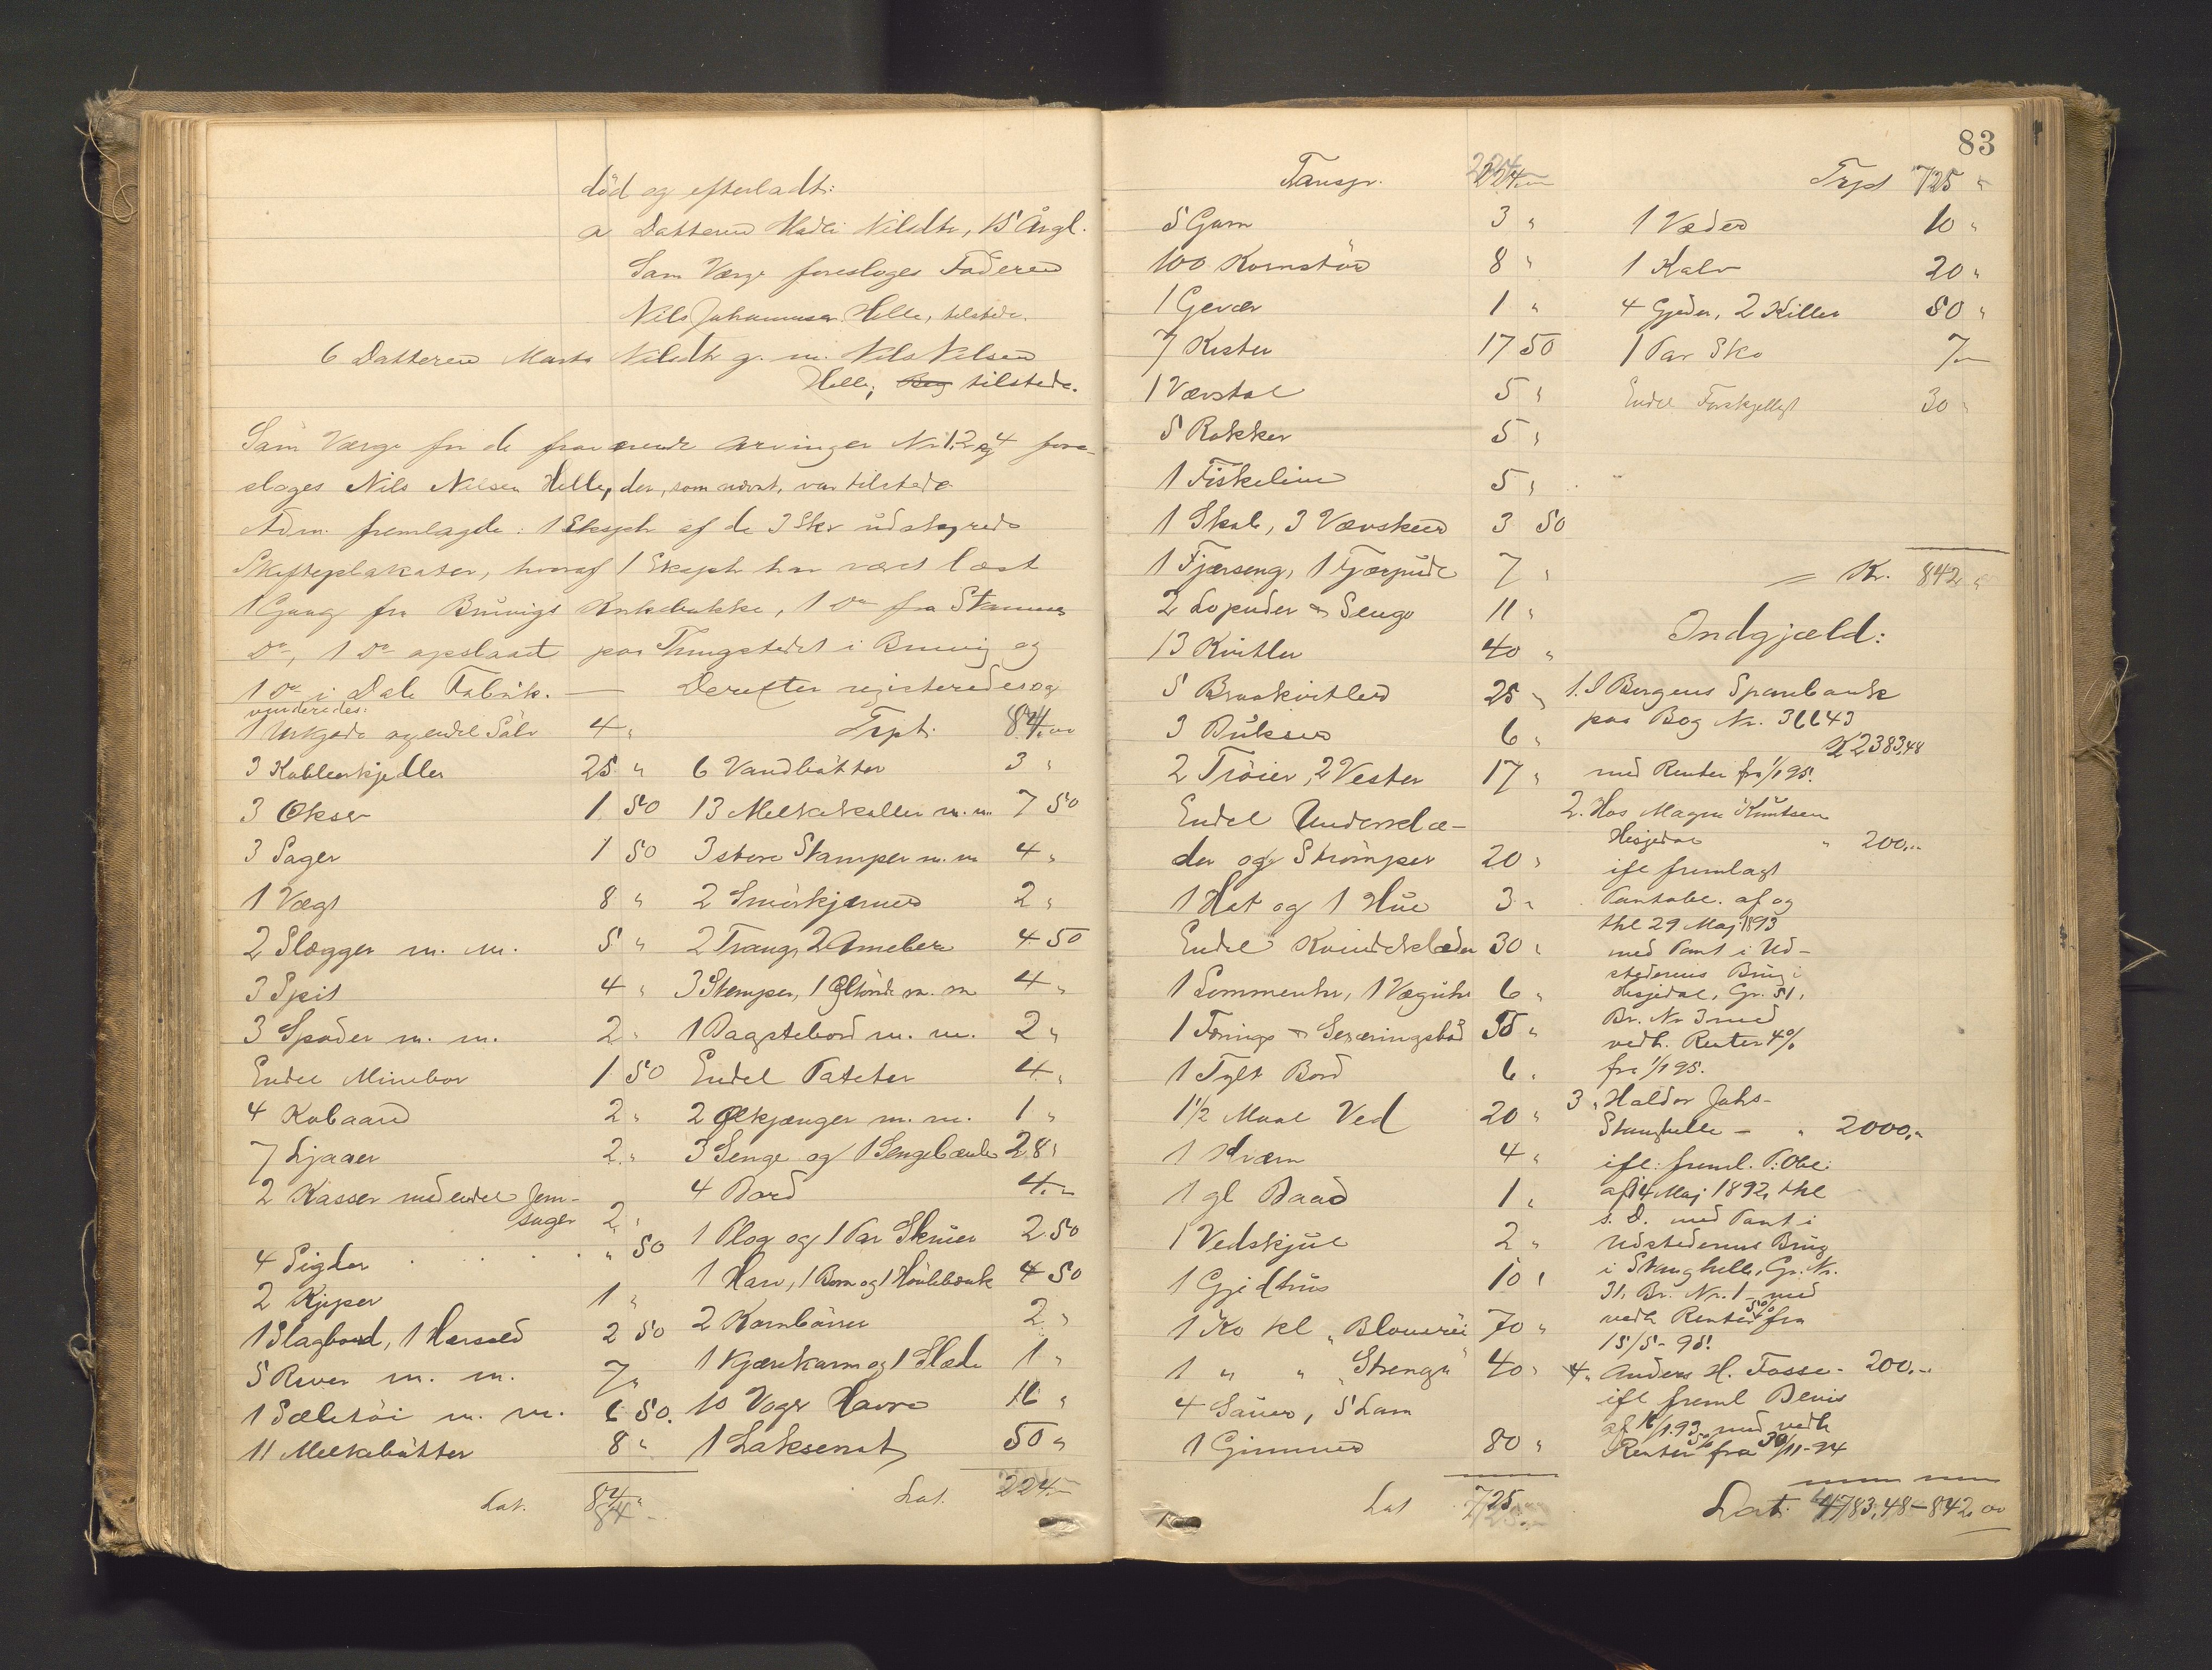 død og efterladt:
a Datteren Nildtr, 15 Årgl.
Som Værge foresloges Faderen
Nils Johannesen Helle, tilstede.
6 Datteren Marta Nilsdtr g. m. Nils Nilsen
Helle, tilstede.
Som Værge for de fraværende Arvinger No 1, 2 og 4 fore-
sloges Nils Nilsen Helle, der, som nævnt, var tilstede
Adm. fremlagde: 1 Eksplr af de 3 Skr udstedte
Skifteplakater, hvoraf 1 Eksplr har været læst
1 Gang fra Bruvigs Kirkebakke, 1 Do fra Stamnes
Do, 1 Do opslaaet paa Thingstedet i Bruvig og
1 Do i Dale Fabrik. — Derefter registreredes og
vurderedes:
1 Urkjede og endel Sølv 4 "
3 Kobberkjedler 25 "
3 Økser 1 50
3 Sager 1 50
1 Vægt 8 "
2 Slægger m. m. 5 "
3 Spit 4 "
3 Spader m. m. 2 "
Endel Minebor 1 50
4 Kubaand 2 "
7 Ljaaer 2 "
2 Kasser med endel Jern-
sager 2 "
4 Sigder . . . . " 50
2 Kjiper 1 "
1 Slagbord, 1 Hærsold 2 50
5 River m. m. 7 "
1 Seletøi m. m. 6 50.
11 Melkebøtter 8 "
Lat. 84 "
84 -
Trpt. 84.00
6 Vandbøtter 3 "
13 Melkekoller m. m. 7 50
3 store Stamper m. m 4 "
2 Smørkjerner 2 "
2 Traug, 2 Ambere 4 50
3 Stamper, 1 Øltønde m. m 4 "
1 Bagstebord m. m. 2 "
Endel Tateter 4 "
2 Ølkjænger m. m. 1 "
3 Senge og 1 Sengebænk 28 "
4 Bord 4. "
1 Plog og 1 Par Skruer 2 50
1 Harv, 1 Bom og 1 Høvlebænk 4 50
2 Kornbører 2 "
1 Kjærekarm og 1 Slæde 1 "
10 Voger Havre 16 "
1 Laksenot 50 "
Lat. 224.-
83
Transpr. 224.-
5 Garn 3 "
100 Kornstør 8 "
1 Gevær 1 "
7 Kister 17 50
1 Vævstol 5 "
5 Rokker 5 "
1 Fiskeline 5 "
1 Skab, 3 Vævskeer 3 50
1 Fjærseng, 1 Fjærpude 7 "
2 Lopuder & Senge 11 "
13 Kvitler 40 "
5 Braakvitler 25 "
3 Bukser 6 "
2 Trøier, 2 Vester 17 "
Endel Underklæ-
der og Strømper 20 "
1 Hat og 1 Hue 3 "
Endel Kvindeklæder 30 "
1 Lommeuhr, 1 Væguhr 6 "
1 Færings & Sexæringsbåd 55 "
1 Tylt Bord 6 .
1 1/2 Maal Ved 20 "
1 Kværn 4 "
1 gl Baad 1 "
1 Vedskjul 2 "
1 Gjedhus 10 "
1 Ko kl "Blomrei" 70 "
1 " " "Strengei" 40 "
4 Sauer, 5 Lam
1 Gimmer 80 "
Lat 725 "
725.-
Trpt 725 "
1 Væder 10 "
1 Kalv 20 "
4 Gjeder, 2 Killer 50 "
1 Par Sko 7.-
Endel Forskjelligt 30 "
= Kr. 842 "
Indgjæld:
1. I Bergens Sparebank
paa Bog Nr. 36643
K 2383,48
med Renter fra 1/1 95.
2. Hos Magne Knutsen
Hesjedal " 200,..
ifl fremlagt
Pantobl. af og
thl 29 Maj 1893
med Pant i Ud-
stederens Brug i
Hesjedal, Gr. 51,
Br. Nr 3 med
vedh. Renter 4%
fra 1/1 95.
3. Haldor Johs-
Stanghelle - " 2000,-
ifl: freml. P. Obl.
af 14 Maj 1892, thl
s. D. med Pant i
Udstederens Brug
i Stanghelle, Gr. Nr.
31, Br. Nr. 1 - med
vedh Renter 5% fra
15/5 - 95.
4. Anders H. Fosse - 200.-
ifl freml Bevis
af 16/1.93 med vedh
Renter 5% fra 30/11-94
Lat: 4783,48 - 842,00